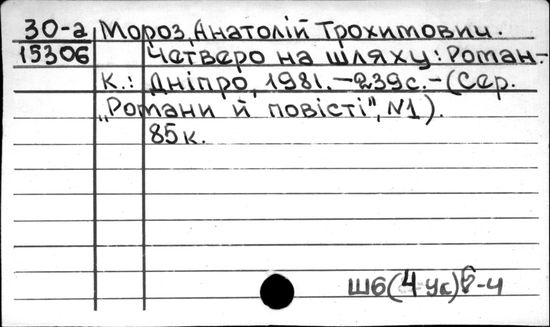 30-а Мороз, Анатолій Трохимович.
15306 Четверо на шляху: Роман.-
К.: Дніпро, 1981.-239с.-(Сер.
„Романи й повісті", №1).
85к.
Ш6(4 Ук)